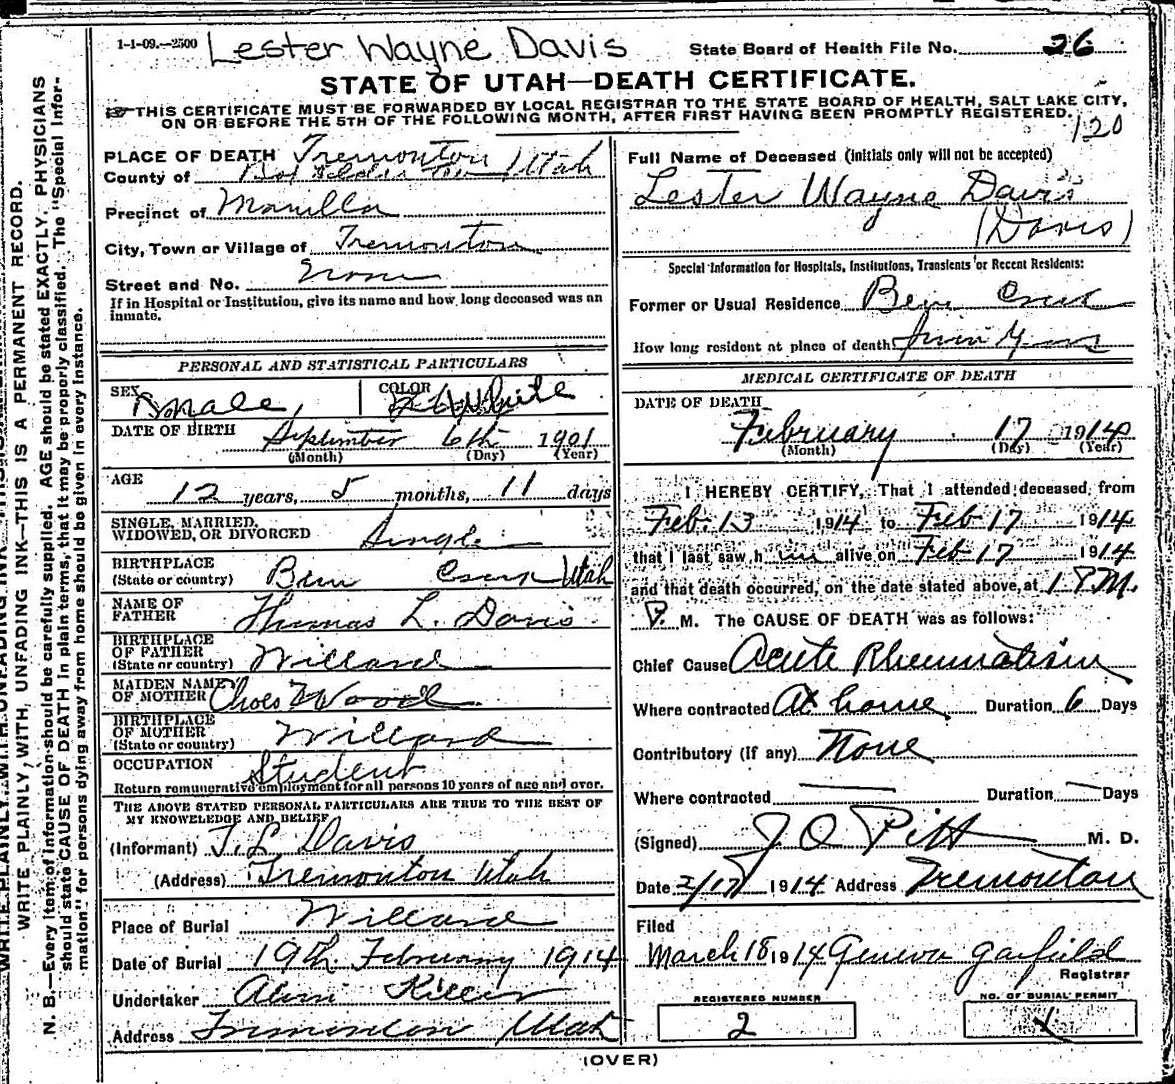 1-1-09.—2500 Lester Wayne Davis State Board of Health File No. 26
STATE OF UTAH—DEATH CERTIFICATE.
THIS CERTIFICATE MUST BE FORWARDED BY LOCAL REGISTRAR TO THE STATE BOARD OF HEALTH, SALT LAKE CITY,
ON OR BEFORE THE 5TH OF THE FOLLOWING MONTH, AFTER FIRST HAVING BEEN PROMPTLY REGISTERED.
120
WRITE PLAINLY, WITH UNFADING INK—THIS IS A PERMANENT RECORD.
N. B.—Every item of information should be carefully supplied. AGE should be stated EXACTLY. PHYSICIANS
should state CAUSE OF DEATH in plain terms, that it may be properly classified. The "Special Infor-
mation" for persons dying away from home should be given in every instance.
PLACE OF DEATH Tremonton Utah
County of Box Elder
Precinct of Manilla
City, Town or Village of Tremonton
Street and No. None
If in Hospital or Institution, give its name and how long deceased was an
inmate.
PERSONAL AND STATISTICAL PARTICULARS
SEX Male COLOR White
DATE OF BIRTH September 6th 1901
(Month) (Day) (Year)
AGE
12 years, 5 months, 11 days
SINGLE, MARRIED,
WIDOWED, OR DIVORCED Single
BIRTHPLACE
(State or country) Utah
NAME OF
FATHER Thomas L. Davis
BIRTHPLACE
OF FATHER
(State or country) Willard
MAIDEN NAME
OF MOTHER Wood
BIRTHPLACE
OF MOTHER
(State or country) Willard
OCCUPATION Student
Return remunerative employment for all persons 10 years of age and over.
THE ABOVE STATED PERSONAL PARTICULARS ARE TRUE TO THE BEST OF
MY KNOWLEDGE AND BELIEF
(Informant) T. L. Davis
(Address) Tremonton Utah
Place of Burial Willard
Date of Burial 19th February 1914
Undertaker
Address Tremonton Utah
Full Name of Deceased (initials only will not be accepted)
Lester Wayne Davis
(Davis)
Special Information for Hospitals, Institutions, Transients or Recent Residents:
Former or Usual Residence
How long resident at place of death
MEDICAL CERTIFICATE OF DEATH
DATE OF DEATH
February 17 1914
(Month) (Day) (Year)
I HEREBY CERTIFY, That I attended deceased from
Feb. 13 1914 to Feb 17 1914
that I last saw him alive on Feb 17 1914
and that death occurred, on the date stated above, at 1 P.M.
P. M. The CAUSE OF DEATH was as follows:
Chief Cause Acute Rheumatism
Where contracted At home Duration 6 Days
Contributory (If any) None
Where contracted Duration Days
(Signed) J O Pitt M. D.
Date 2/17 1914 Address Tremonton
Filed
March 18 1914 Geneva Garfield
Registrar
REGISTERED NUMBER
2
NO. OF BURIAL PERMIT
(OVER)